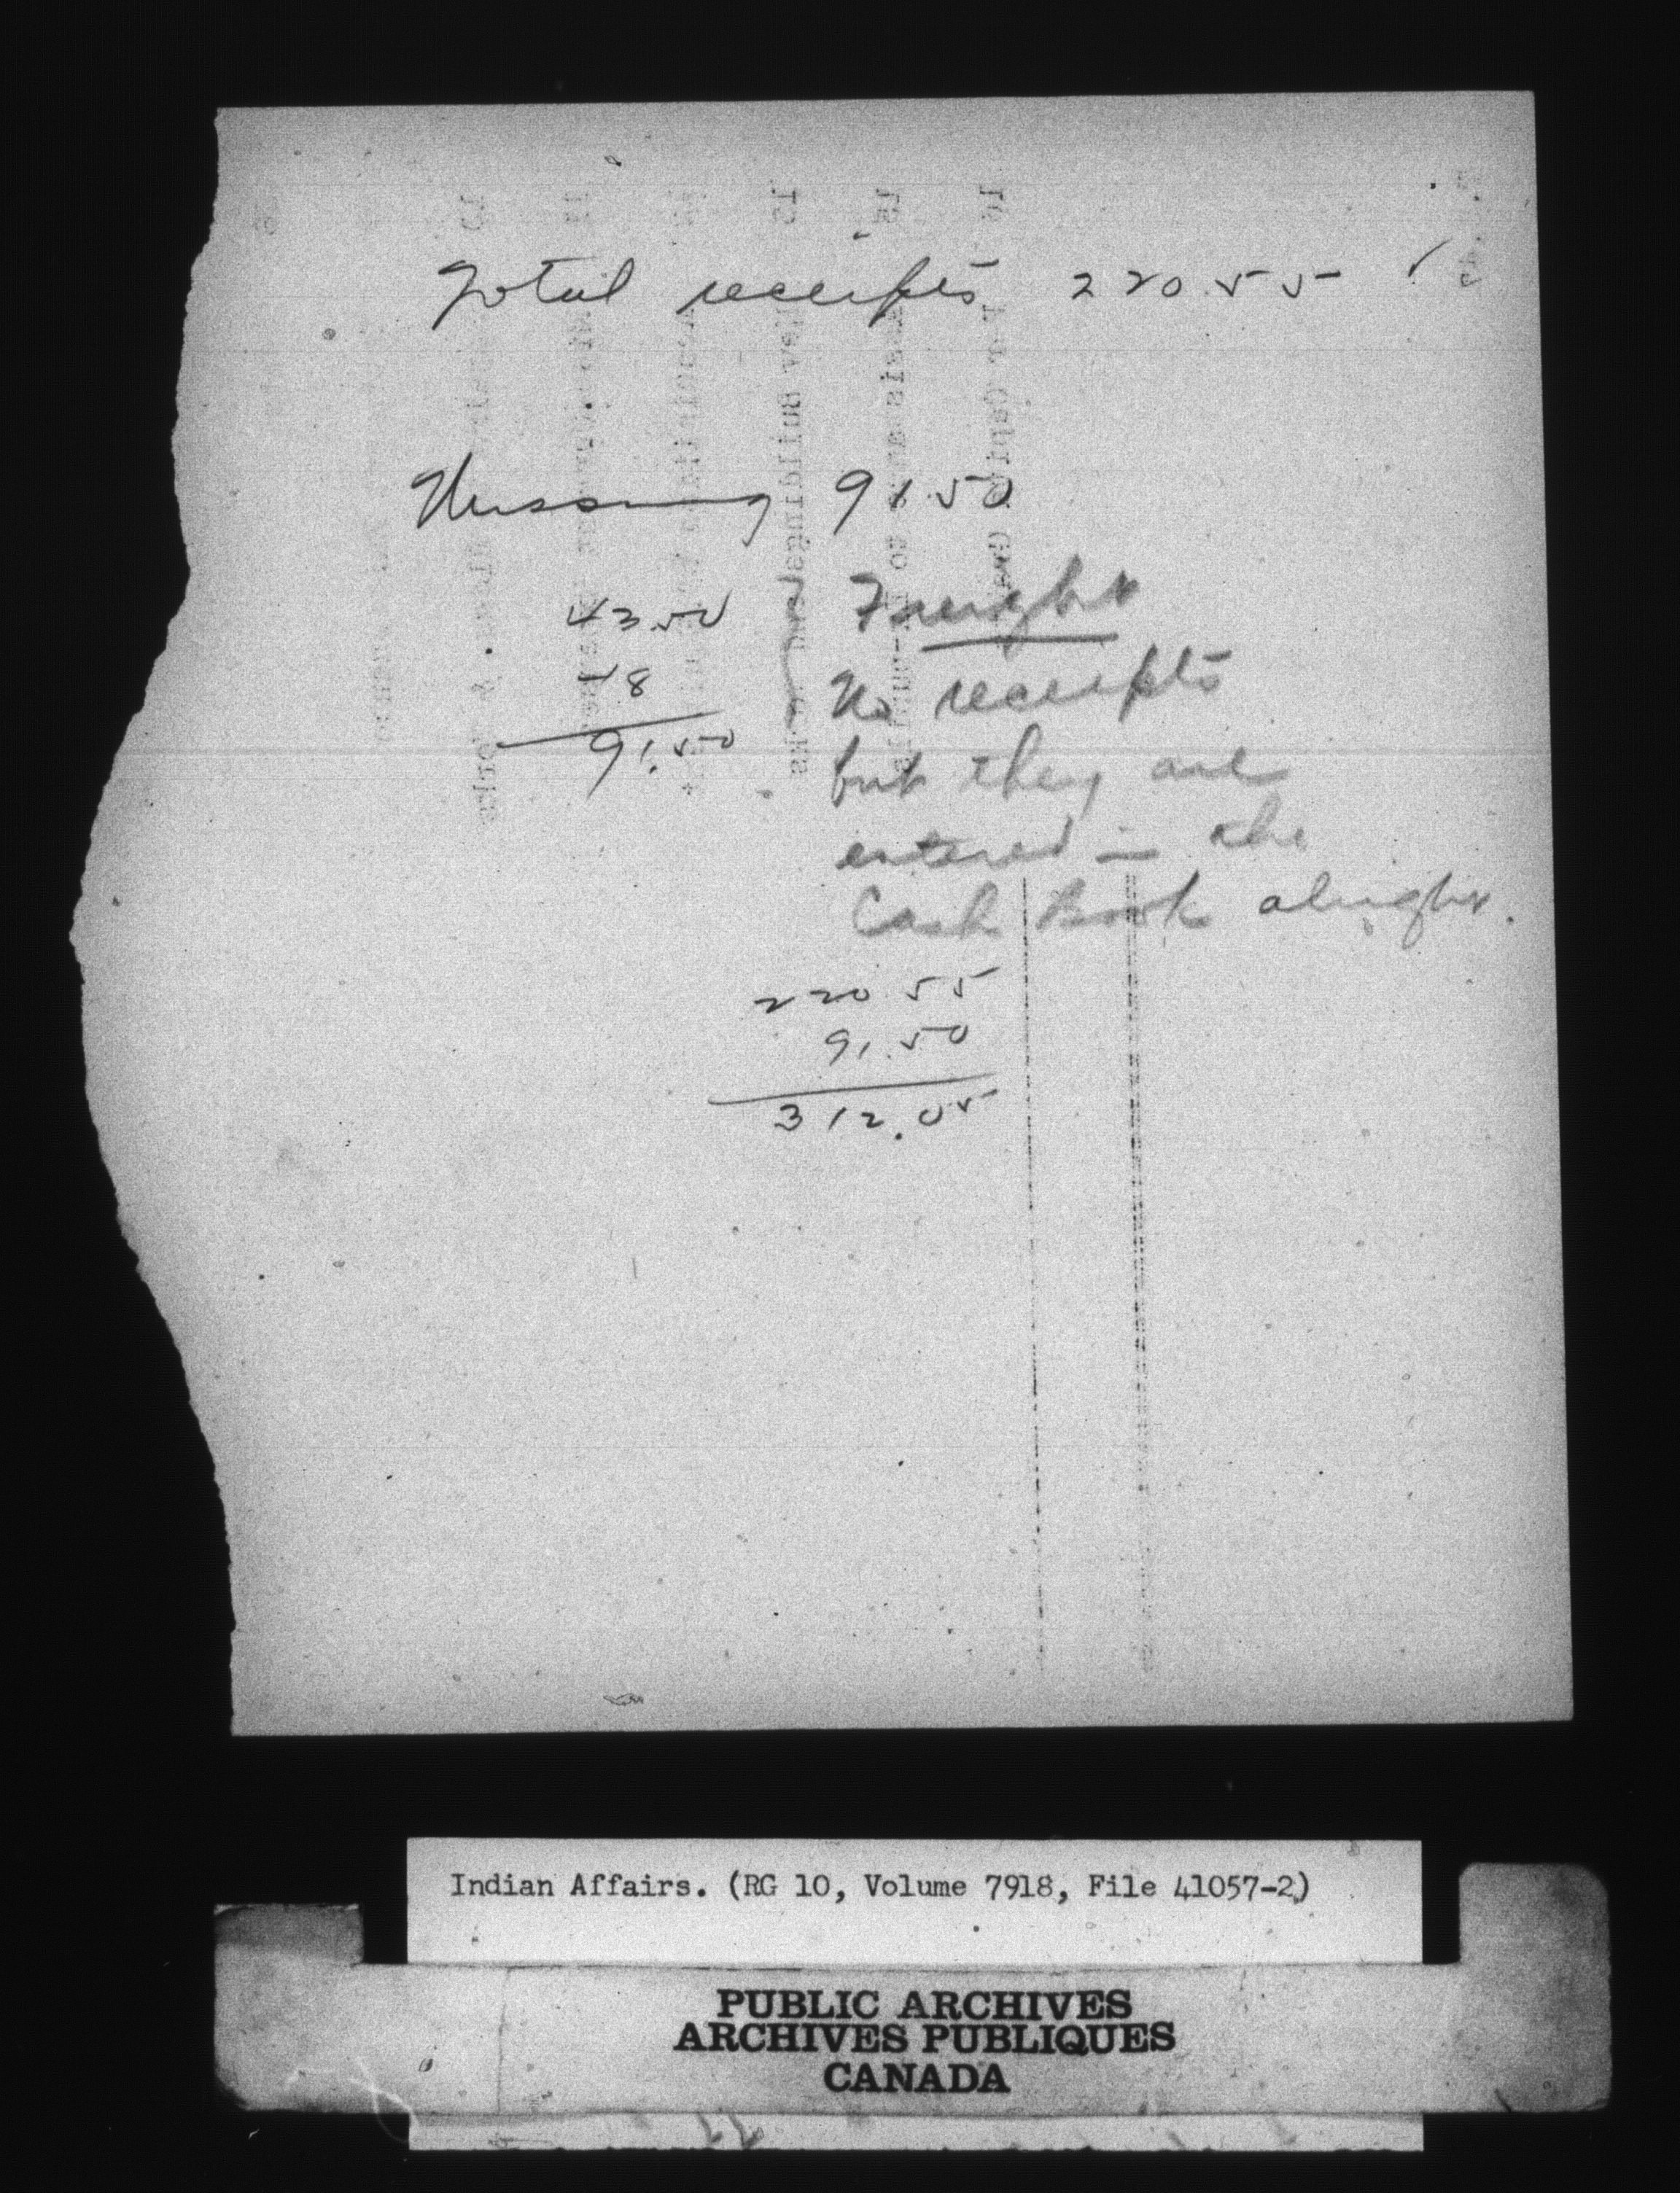 Total receipts 220.55 ✓
Missing 91.50
43.50
48
91.50
Freight
No receipts
but they are
entered in the
Cash Book alright.
220.55
91.50
312.05
Indian Affairs. (RG 10, Volume 7918, File 41057-2)
PUBLIC ARCHIVES
ARCHIVES PUBLIQUES
CANADA